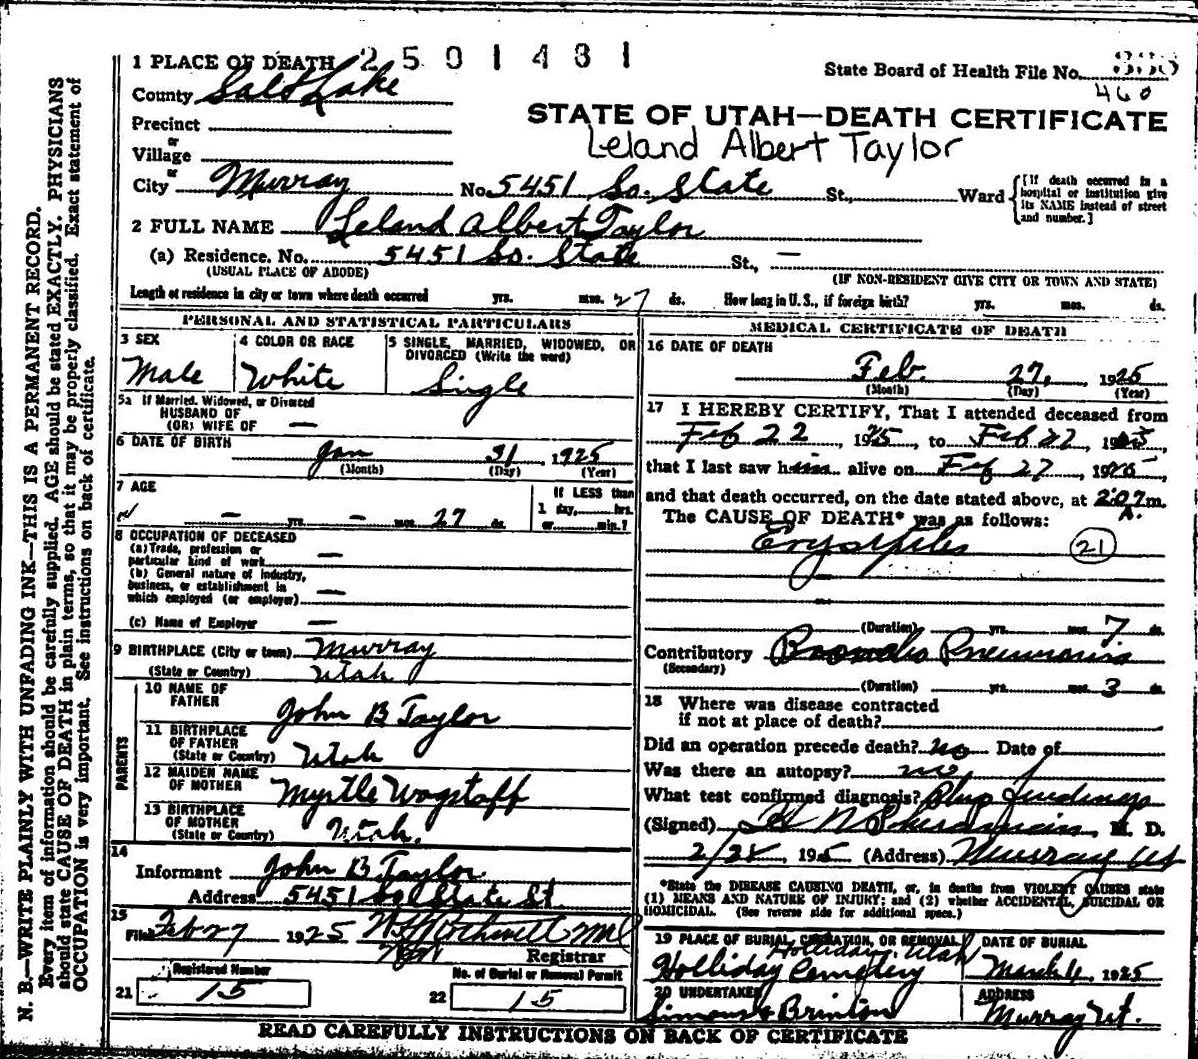 N. B.—WRITE PLAINLY WITH UNFADING INK—THIS IS A PERMANENT RECORD.
Every item of information should be carefully supplied. AGE should be stated EXACTLY. PHYSICIANS
should state CAUSE OF DEATH in plain terms, so that it may be properly classified. Exact statement of
OCCUPATION is very important. See instructions on back of certificate.
1 PLACE OF DEATH 2501431
State Board of Health File No.
460
County Salt Lake
STATE OF UTAH—DEATH CERTIFICATE
Precinct
or
Leland Albert Taylor
Village
or
City Murray No. 5451 So. State St., Ward
[If death occurred in a
hospital or institution give
its NAME instead of street
and number.]
2 FULL NAME Leland Albert Taylor
(a) Residence. No. 5451 So. State St., —
(USUAL PLACE OF ABODE) (IF NON-RESIDENT GIVE CITY OR TOWN AND STATE)
Length of residence in city or town where death occurred yrs. mos. 27 ds. How long in U. S., if foreign birth? yrs. mos. ds.
PERSONAL AND STATISTICAL PARTICULARS
3 SEX
Male
4 COLOR OR RACE
White
5 SINGLE, MARRIED, WIDOWED, OR
DIVORCED (Write the word)
Single
5a If Married, Widowed, or Divorced
HUSBAND OF
(OR) WIFE OF —
6 DATE OF BIRTH
Jan 31, 1925
(Month) (Day) (Year)
7 AGE
— yrs. — mos. 27 ds.
If LESS than
1 day, hrs.
or min.?
8 OCCUPATION OF DECEASED
(a) Trade, profession or
particular kind of work —
(b) General nature of industry,
business, or establishment in
which employed (or employer) —
(c) Name of Employer —
9 BIRTHPLACE (City or town) Murray
(State or Country) Utah
PARENTS
10 NAME OF
FATHER John B Taylor
11 BIRTHPLACE
OF FATHER
(State or Country) Utah
12 MAIDEN NAME
OF MOTHER Myrtle Wagstaff
13 BIRTHPLACE
OF MOTHER
(State or Country) Utah.
14
Informant John B Taylor
Address 5451 So State St.
15
Filed Feb 27 1925
Registrar
Registered Number
21 15
No. of Burial or Removal Permit
22 15
MEDICAL CERTIFICATE OF DEATH
16 DATE OF DEATH
Feb. 27, 1925
(Month) (Day) (Year)
17 I HEREBY CERTIFY, That I attended deceased from
Feb 22, 1925, to Feb 27 1925
that I last saw him alive on Feb 27, 1925,
and that death occurred, on the date stated above, at 2:07 m.
A.
The CAUSE OF DEATH* was as follows:
21
(Duration) yrs. mos. 7 ds.
Contributory
(Secondary)
(Duration) yrs. mos. 3 ds.
18 Where was disease contracted
if not at place of death?
Did an operation precede death? no Date of
Was there an autopsy? no
What test confirmed diagnosis?
(Signed) M. D.
192 (Address) Murray Ut
*State the DISEASE CAUSING DEATH, or, in deaths from VIOLENT CAUSES state
(1) MEANS AND NATURE OF INJURY; and (2) whether ACCIDENTAL, SUICIDAL OR
HOMICIDAL. (See reverse side for additional space.)
19 PLACE OF BURIAL, CREMATION, OR REMOVAL
Holliday, Utah
Holliday Cemetery
DATE OF BURIAL
March 1, 1925
20 UNDERTAKER
Simons & Brinton
ADDRESS
Murray Ut.
READ CAREFULLY INSTRUCTIONS ON BACK OF CERTIFICATE